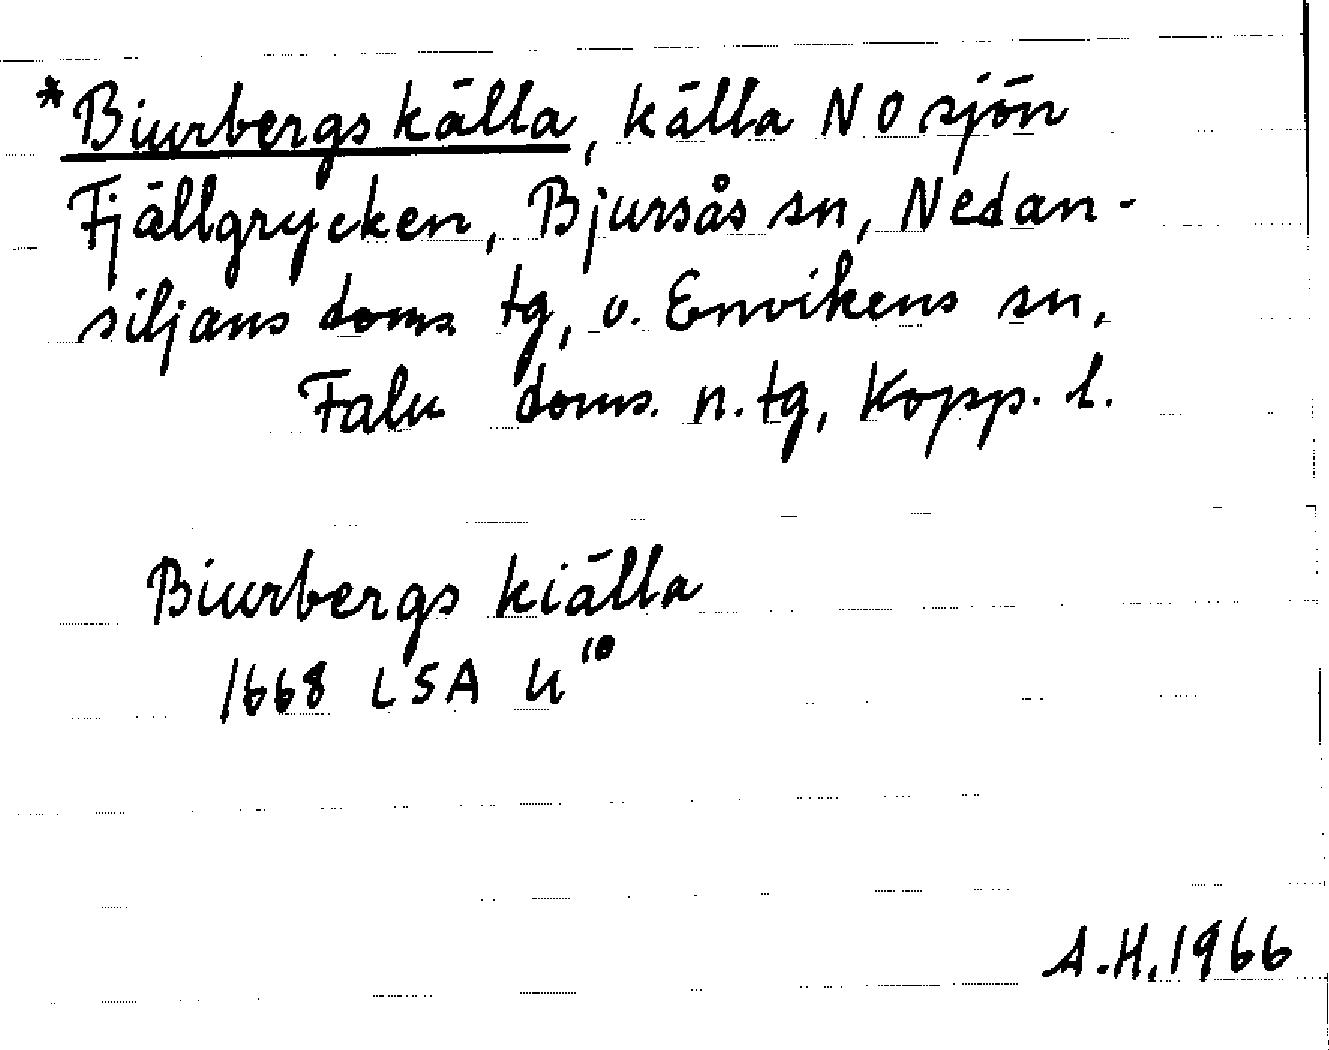 *Biurbergs källa, källa N O sjön
Fjällgrycken, Bjursås sn, Nedan-
siljans doms tg, o. Envikens sn,
Falu doms. n. tg, Kopp. l.
Biurbergs kiälla
1668 LSA U¹⁰
A.H. 1966